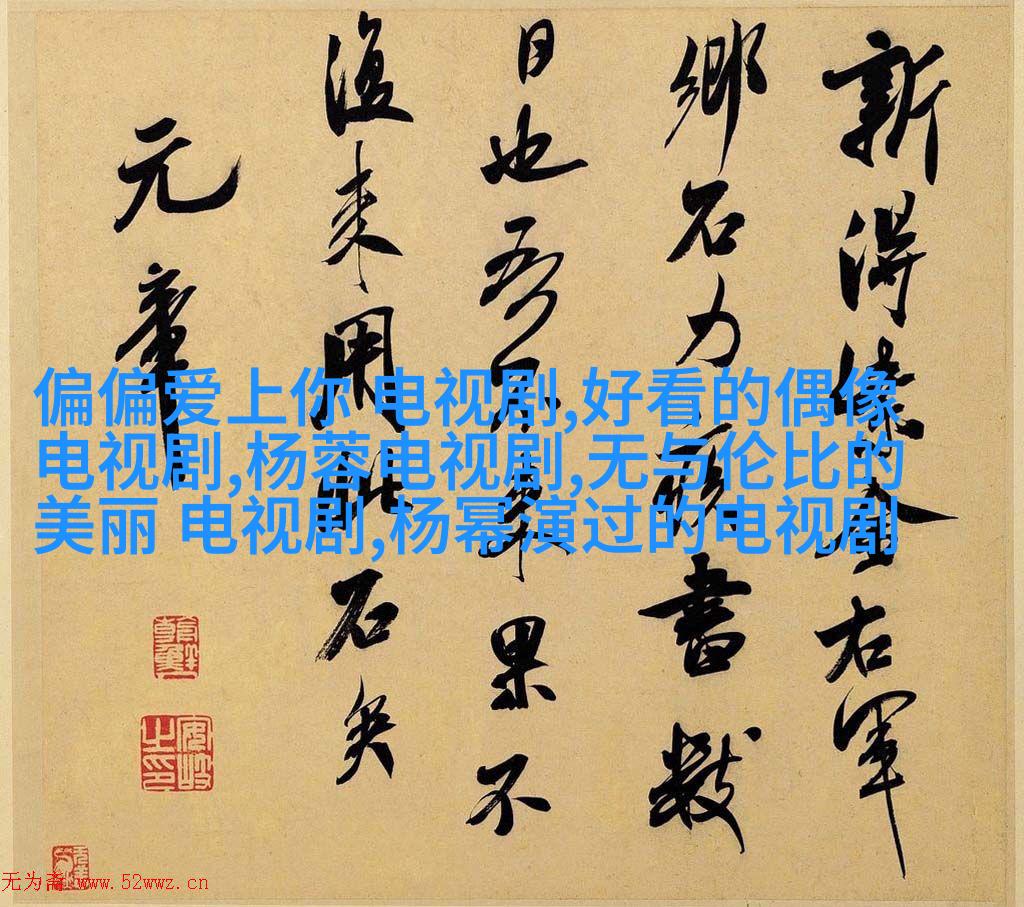 新得紫金右軍
鄉石力疾書數
日也吾不來果不
復來用此石矣
元章
偏偏爱上你 电视剧,好看的偶像
电视剧,杨蓉电视剧,无与伦比的
美丽 电视剧,杨幂演过的电视剧
安岐
之印
无为斋 www.52wwz.cn